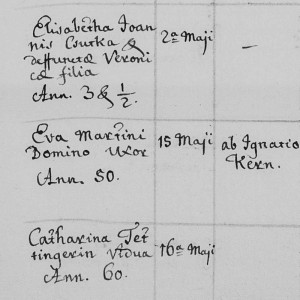 Elisabetha Joan
nis Csurka &
deffunctæ Veroni
cæ filia
Ann. 3 & 1/2.
2a Maji
—
Eva Martini
Domino Uxor
Ann. 50.
15 Maji
ab Ignatio
Kern.
Catharina Tet
tingerin Vidua
Ann. 60.
16a Maji